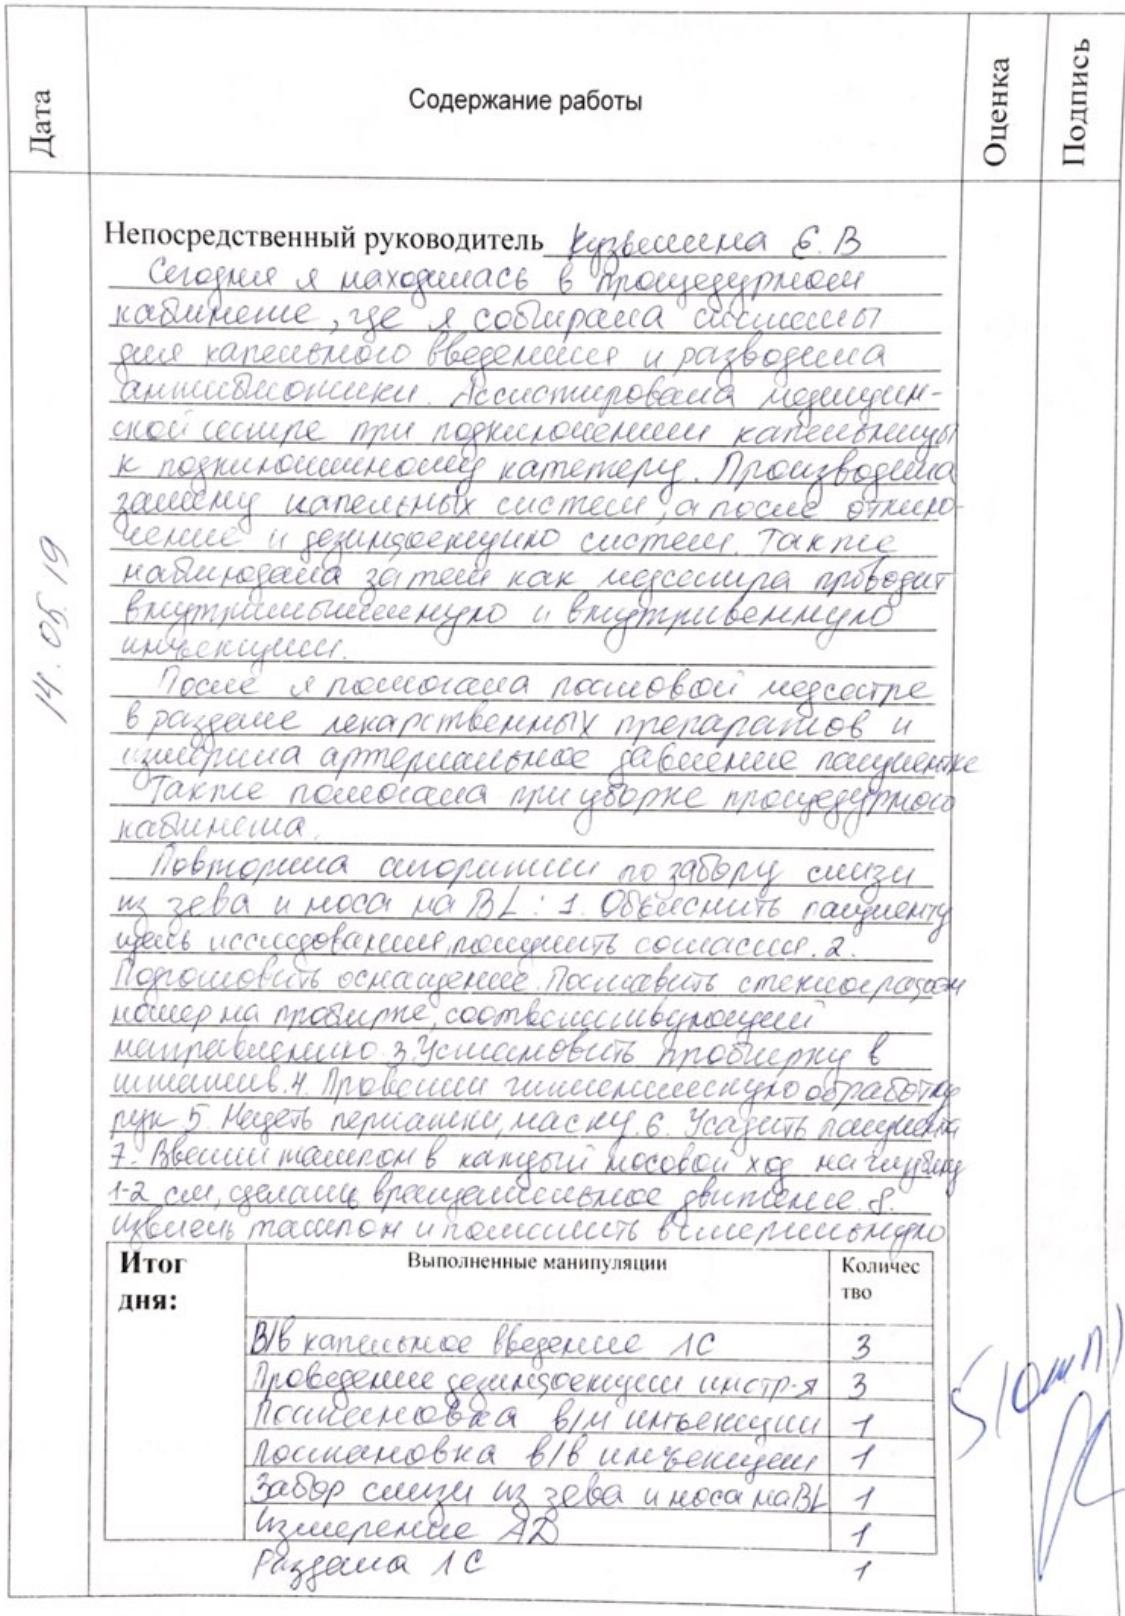 Дата
Содержание работы
Оценка
Подпись
14.05.19
Непосредственный руководитель Кузьмина Е.В
Сегодня я находилась в процедурном
кабинете, где я собирала системы
для капельного введения и разводила
антибиотики. Ассистировала медицин-
ской сестре при подключении капельницы
к подключичному катетеру. Производила
замену капельных систем, а после отклю-
чение и дезинфекцию систем. Также
наблюдала за тем как медсестра проводит
внутримышечную и внутривенную
инъекции.
После я помогала постовой медсестре
в раздаче лекарственных препаратов и
измерила артериальное давление пациентке
Также помогала при уборке процедурного
кабинета.
Повторила алгоритм по забору слизи
из зева и носа на BL: 1. Объяснить пациенту
цель исследования, получить согласие. 2.
Подготовить оснащение. Поставить стеклографом
номер на пробирке, соответствующий
направлению. 3. Установить пробирку в
штатив. 4. Провести гигиеническую обработку
рук 5. Надеть перчатки, маску. 6. Усадить пациента
7. Ввести тампон в каждый носовой ход на глубину
1-2 см, сделать вращательное движение. 8.
Извлечь тампон и поместить в стерильную
Итог
дня:
Выполненные манипуляции
Количес
тво
В/в капельное введение ЛС 3
Проведение дезинфекции инстр-я 3
Постановка в/м инъекции 1
Постановка в/в инъекции 1
Забор слизи из зева и носа на BL 1
Измерение АД 1
Раздача ЛС 1
5 (отл)